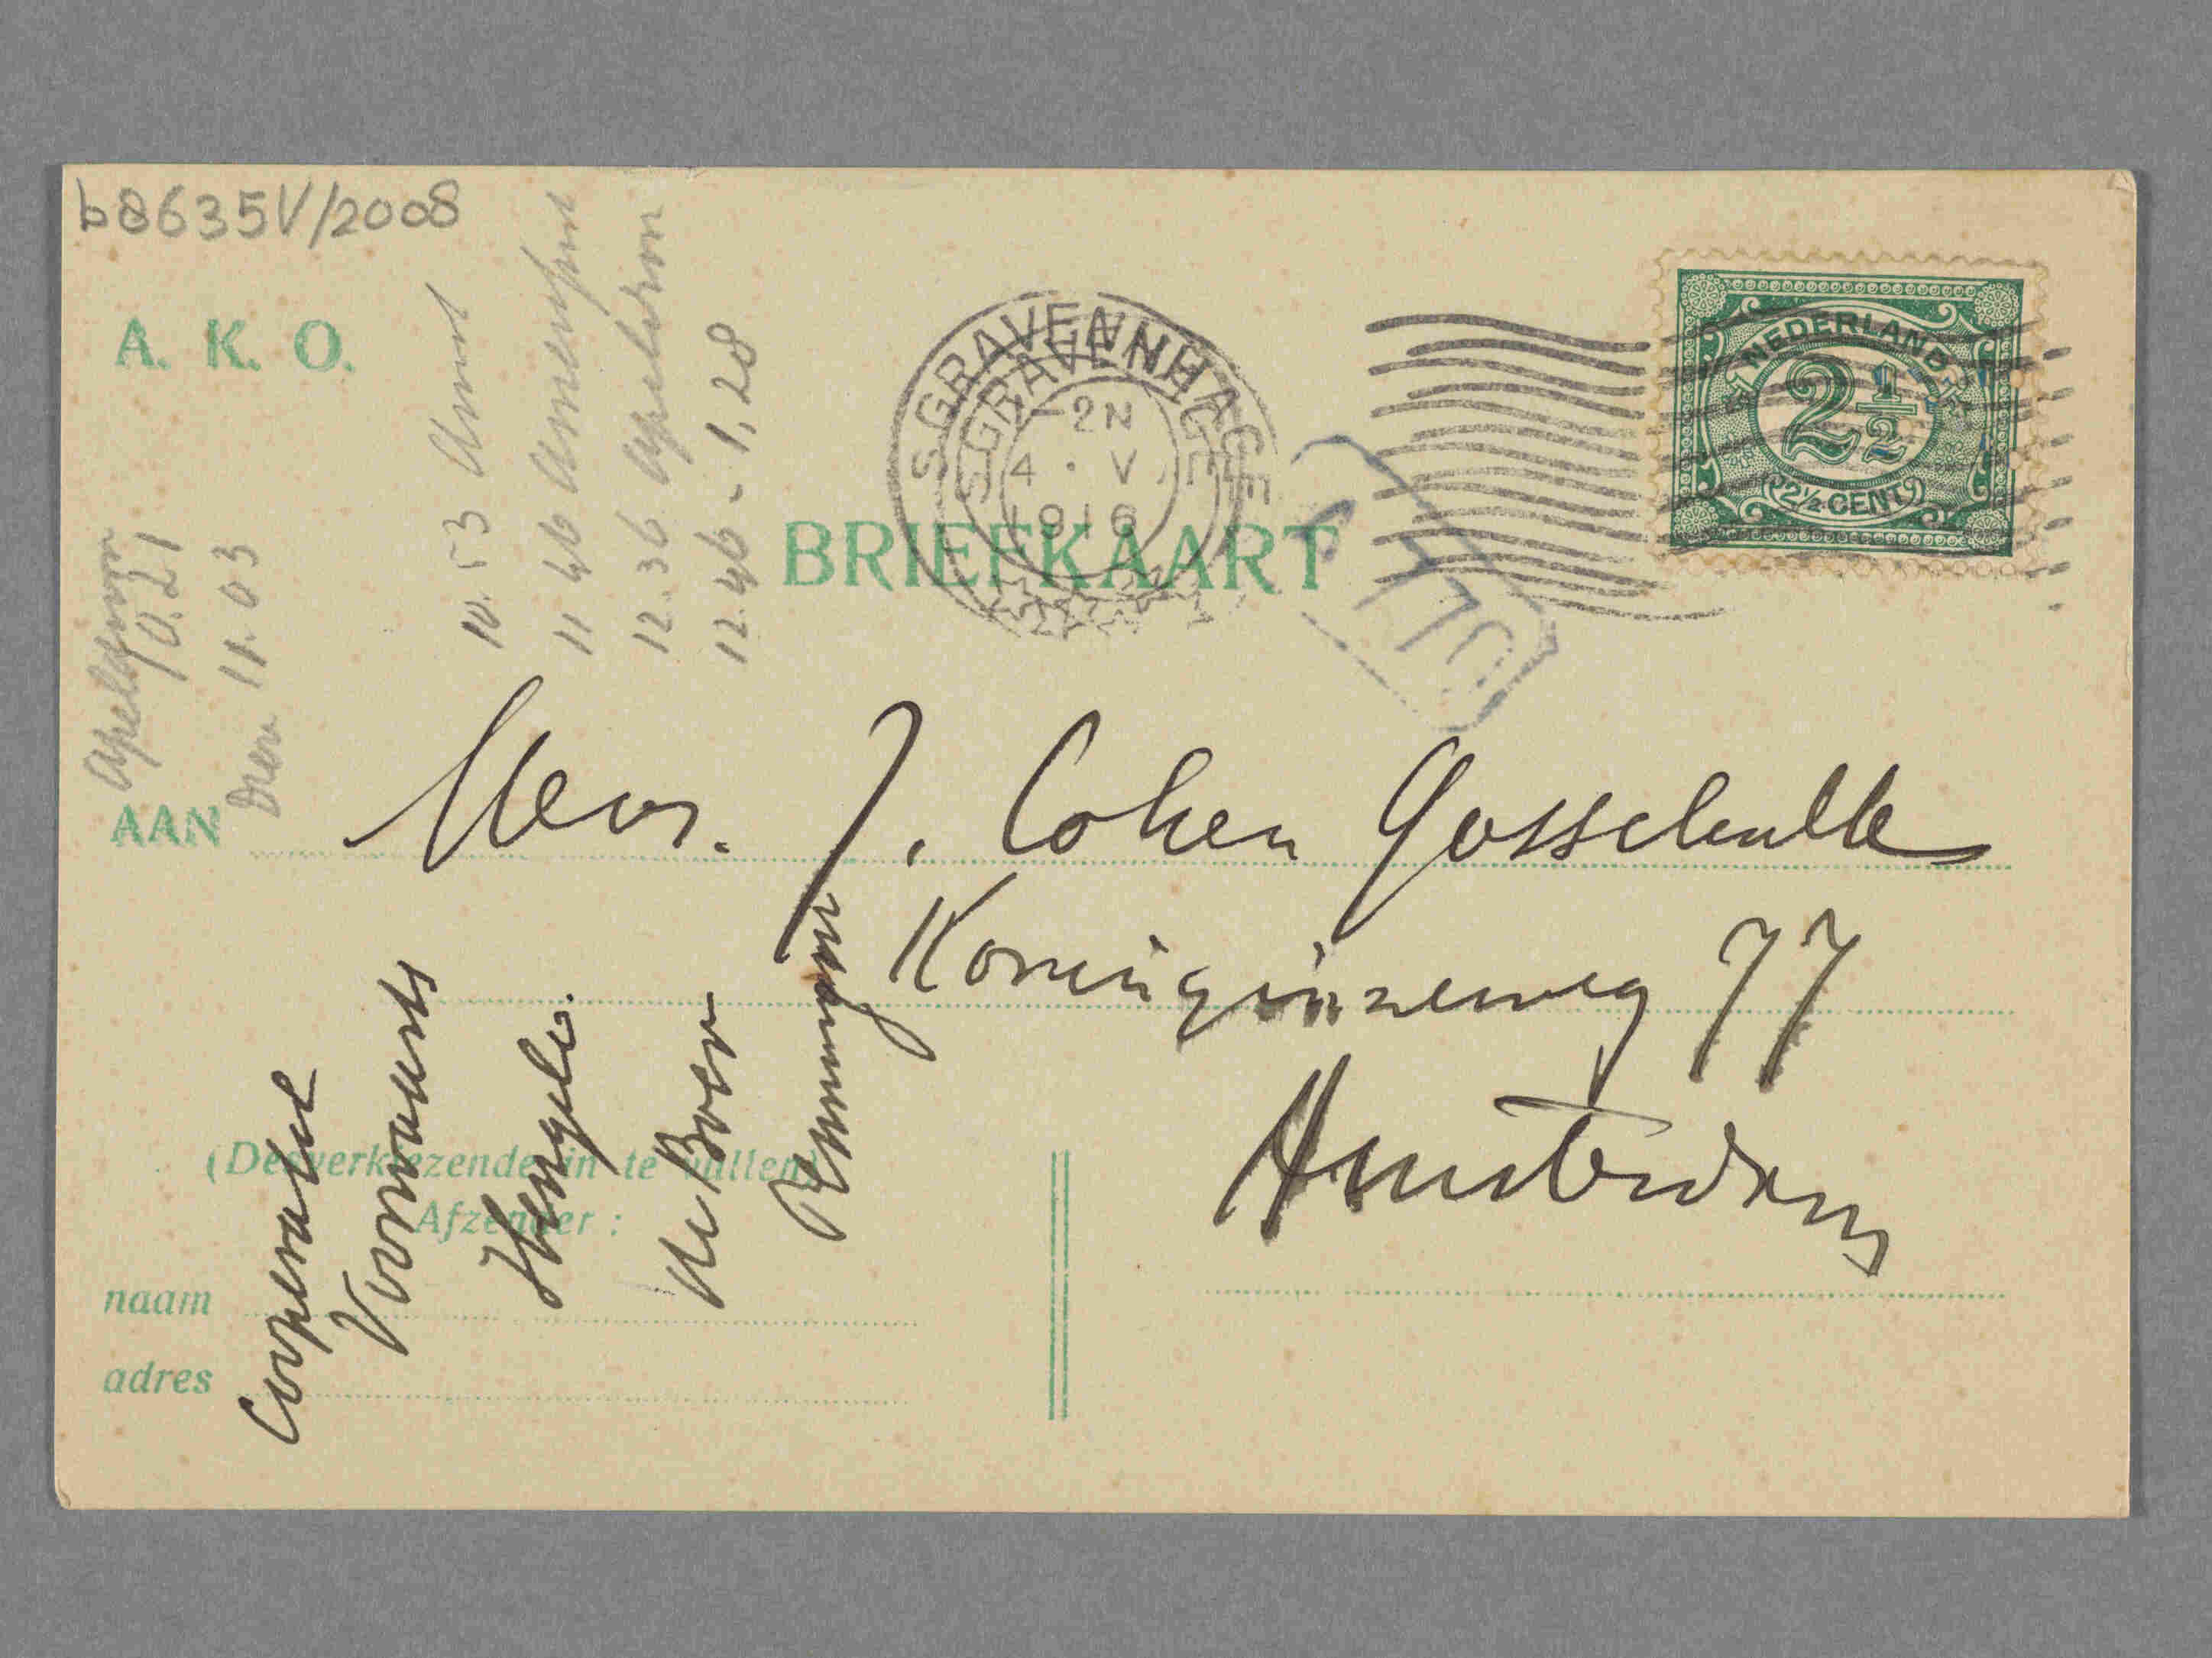 b8635V/2008
A. K. O.
Apeldoorn
10.21
11.03
10.53
11 46 Amersfoort
12.36 Apeldoorn
12.46 - 1,28
'S GRAVENHAGE
'S GRAVENHAGE
-2N
4 · V
1916
NEDERLAND
2½
2½
2½
2½ CENT
BRIEFKAART
AAN
Mevr. J. Cohen Gosschalk
Koninginneweg 77
Amsterdam
(Desverkiezende in te vullen)
Afzender :
naam
adres
Cooperatie
Voorwaarts
Hengelo.
de Boer